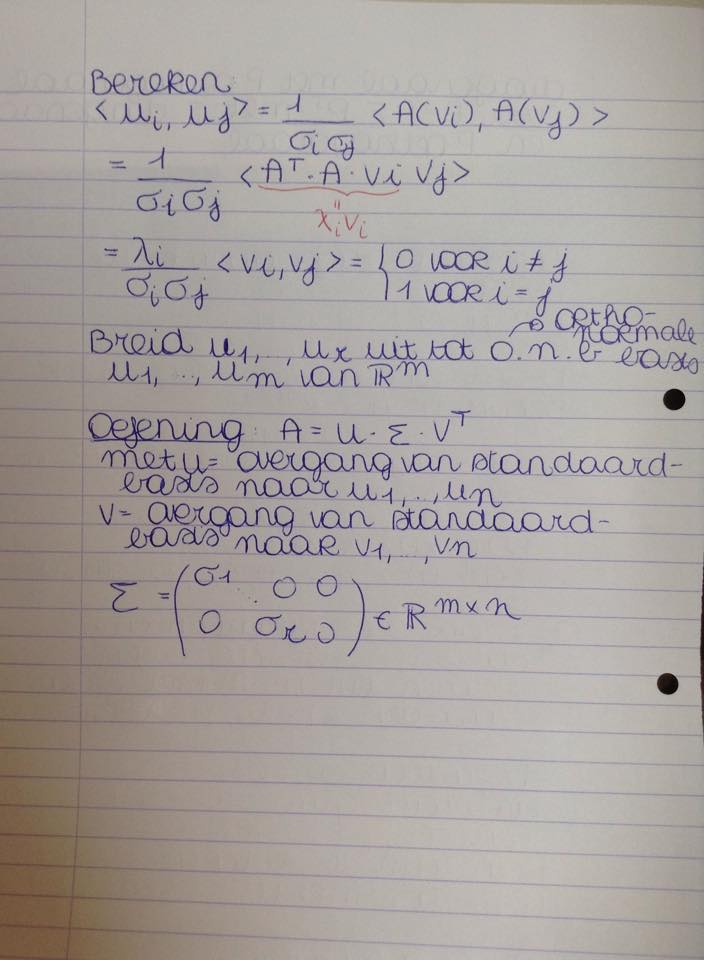 Bereken:
<ui, uj> = 1/(σi σj) <A(vi), A(vj)>
= 1/(σi σj) <A^T · A · vi vj>
"
λivi
= λi/(σi σj) <vi, vj> = { 0 voor i ≠ j
1 voor i = j
→ ortho-
normale
Breid u1, .., ur uit tot o.n.b basis
u1, .., um van ℝ^m
Oefening: A = U · Σ · V^T
met u = overgang van standaard-
basis naar u1, .., un
v = overgang van standaard-
basis naar v1, .., vn
Σ = ( σ1 ⋱ 0 0
0 σr 0 ) ∈ ℝ^{m×n}